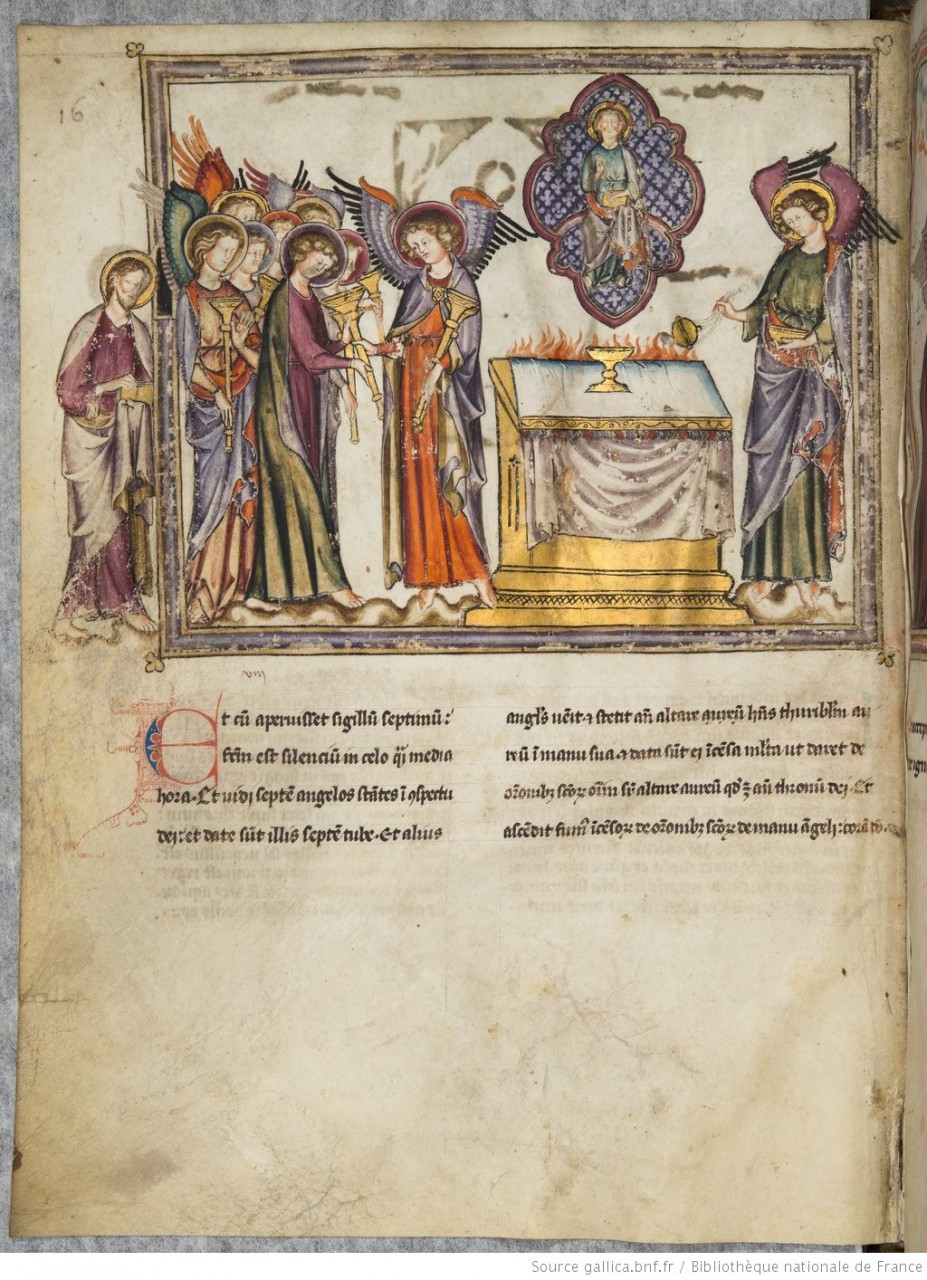 16
viij
Et cū aperuisset sigillū septimū:
fc̄m est silenciū in celo q̄i media
hora. Et uidi septē angelos stātes ī ꝯspectu
dei: et date sūt illis septē tube. Et alius
angl's uēit ⁊ stetit an̄ altare aureū hn̄s thuriblm̄ au
reū ī manu sua ⁊ data sūt ei īcēsa ml'ta ut daret de
or̄onibꝫ sc̄oꝝ oīm sr̄ altare aureū qd' ē an̄ thronū dei. Et
ascēdit fum' īcēsoꝝ de or̄onibꝫ sc̄oꝝ de manu āgeli: corā dō.
Source gallica.bnf.fr / Bibliothèque nationale de France